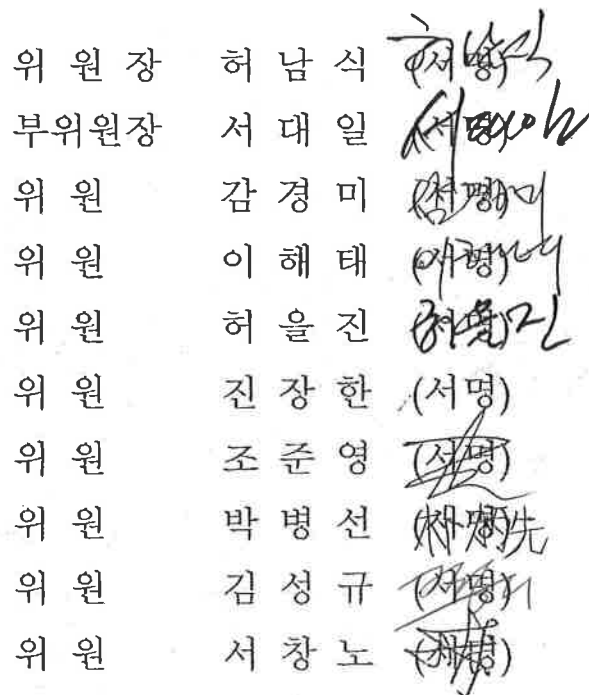 위 원 장 허 남 식 (서명)
부위원장 서 대 일 (서명)
위 원 감 경 미 (서명)
위 원 이 해 태 (서명)
위 원 허 을 진 (서명)
위 원 진 장 한 (서명)
위 원 조 준 영 (서명)
위 원 박 병 선 (서명)
위 원 김 성 규 (서명)
위 원 서 창 노 (서명)